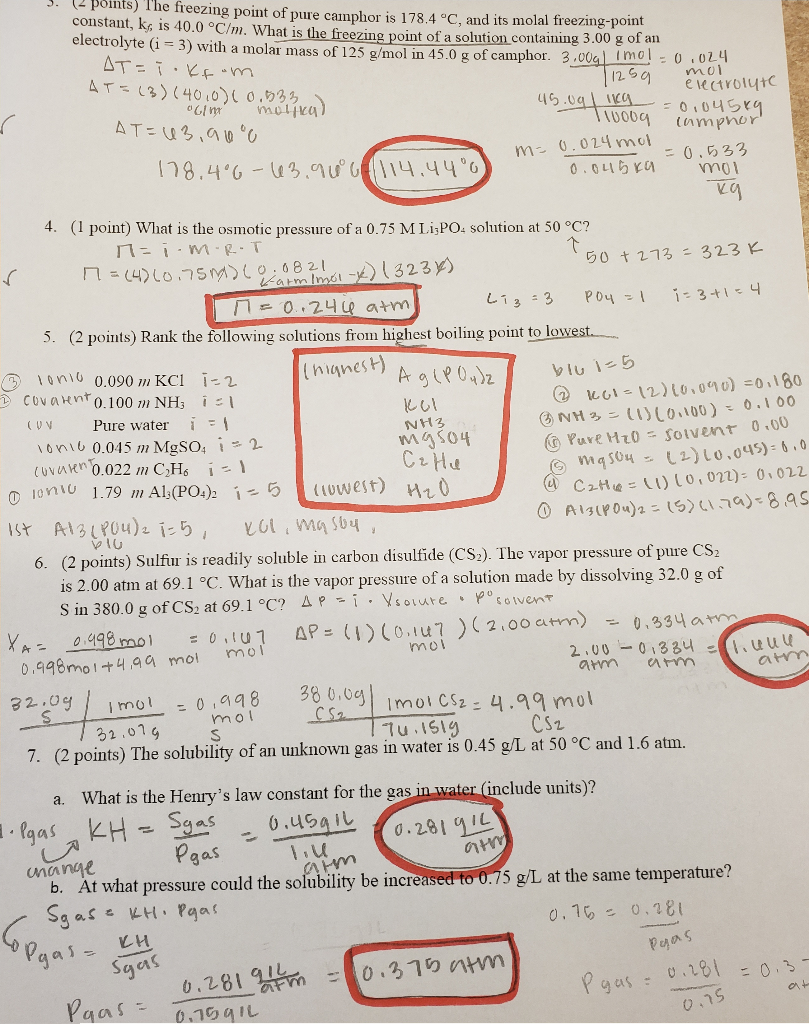 3. (2 points) The freezing point of pure camphor is 178.4 °C, and its molal freezing-point
constant, kf, is 40.0 °C/m. What is the freezing point of a solution containing 3.00 g of an
electrolyte (i = 3) with a molar mass of 125 g/mol in 45.0 g of camphor.
3.00g | 1mol = 0.024 mol electrolyte
125g
ΔT = i · Kf · m
ΔT = (3)(40.0)(0.533
°C/m mol/kg)
45.0g | 1kg = 0.045kg camphor
1000g
ΔT = 63.96°C
m = 0.024mol = 0.533 mol
0.045kg kg
178.4°C - 63.96°C = 114.44°C
4. (1 point) What is the osmotic pressure of a 0.75 M Li₃PO₄ solution at 50 °C?
Π = i · M · R · T
↑ 50 + 273 = 323 K
Π = (4)(0.75M)(0.0821 L·atm/mol·K)(323K)
Π = 0.246 atm
Li3 = 3 PO4 = 1 i = 3+1 = 4
5. (2 points) Rank the following solutions from highest boiling point to lowest.
③ ionic 0.090 m KCl i = 2
② covalent 0.100 m NH₃ i = 1
cov Pure water i = 1
ionic 0.045 m MgSO₄ i = 2
covalent 0.022 m C₂H₆ i = 1
① ionic 1.79 m Al₃(PO₄)₂ i = 5
(highest) Ag(PO4)2
KCl
NH3
MgSO4
C2H6
(lowest) H2O
b/c i=5
② KCl = (2)(0.090) = 0.180
③ NH3 = (1)(0.100) = 0.100
⑥ Pure H2O = solvent 0.00
⑤ MgSO4 = (2)(0.045) = 0.0
④ C2H6 = (1)(0.022) = 0.022
① Al3(PO4)2 = (5)(1.79) = 8.95
1st Al3(PO4)2 i=5, KCl, MgSO4,
b/c
6. (2 points) Sulfur is readily soluble in carbon disulfide (CS₂). The vapor pressure of pure CS₂
is 2.00 atm at 69.1 °C. What is the vapor pressure of a solution made by dissolving 32.0 g of
S in 380.0 g of CS₂ at 69.1 °C? ΔP = i · Xsolute · P°solvent
XA = 0.998mol = 0.167 mol
0.998mol + 4.99 mol
ΔP = (1)(0.167 mol)(2.00atm) = 0.334atm
2.00 atm - 0.334 atm = 1.666 atm
32.0g S | 1mol = 0.998 mol S
32.07g
380.0g CS2 | 1mol CS2 = 4.99 mol CS2
76.151g
7. (2 points) The solubility of an unknown gas in water is 0.45 g/L at 50 °C and 1.6 atm.
a. What is the Henry's law constant for the gas in water (include units)?
· Pgas KH = Sgas = 0.45g/L = 0.281 g/L
change Pgas 1.6 atm atm
b. At what pressure could the solubility be increased to 0.75 g/L at the same temperature?
Sgas = KH · Pgas
0.75 = 0.281
Pgas
Pgas = KH
Sgas
Pgas = 0.281 g/L atm = 0.375 atm
0.75g/L
Pgas = 0.281 = 0.3
0.75